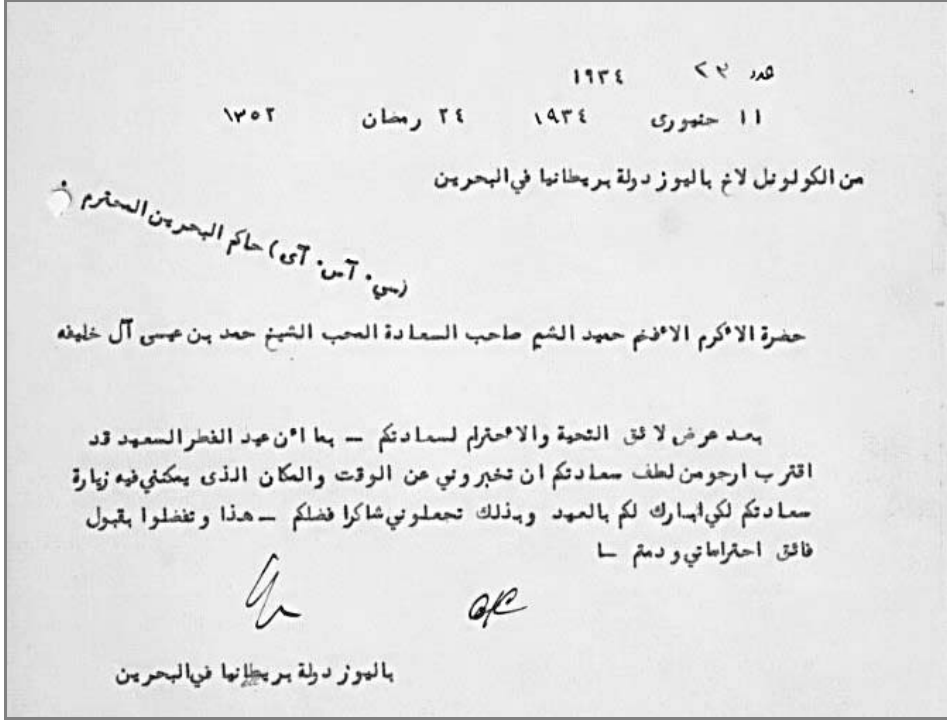 عدد ٢٣ ١٩٣٤
١١ جنيورى ١٩٣٤ ٢٤ رمضان ١٣٥٢
من الكولونل لاخ باليوز دولة بريطانيا في البحرين
حضرة الأكرم الأفخم حميد الشيم صاحب السعادة المحب الشيخ حمد بن عيسى آل خليفه
(سي. آس. آى) حاكم البحرين المحترم
بعد عرض لائق التحية والأحترام لسعادتكم – بما أن عيد الفطر السعيد قد
اقترب ارجو من لطف سعادتكم ان تخبروني عن الوقت والمكان الذى يمكنني فيه زيارة
سعادتكم لكي ابارك لكم بالعيد وبذلك تجعلوني شاكرا فضلكم – هذا وتفضلوا بقبول
فائق احتراماتي ودمتم
باليوز دولة بريطانيا في البحرين